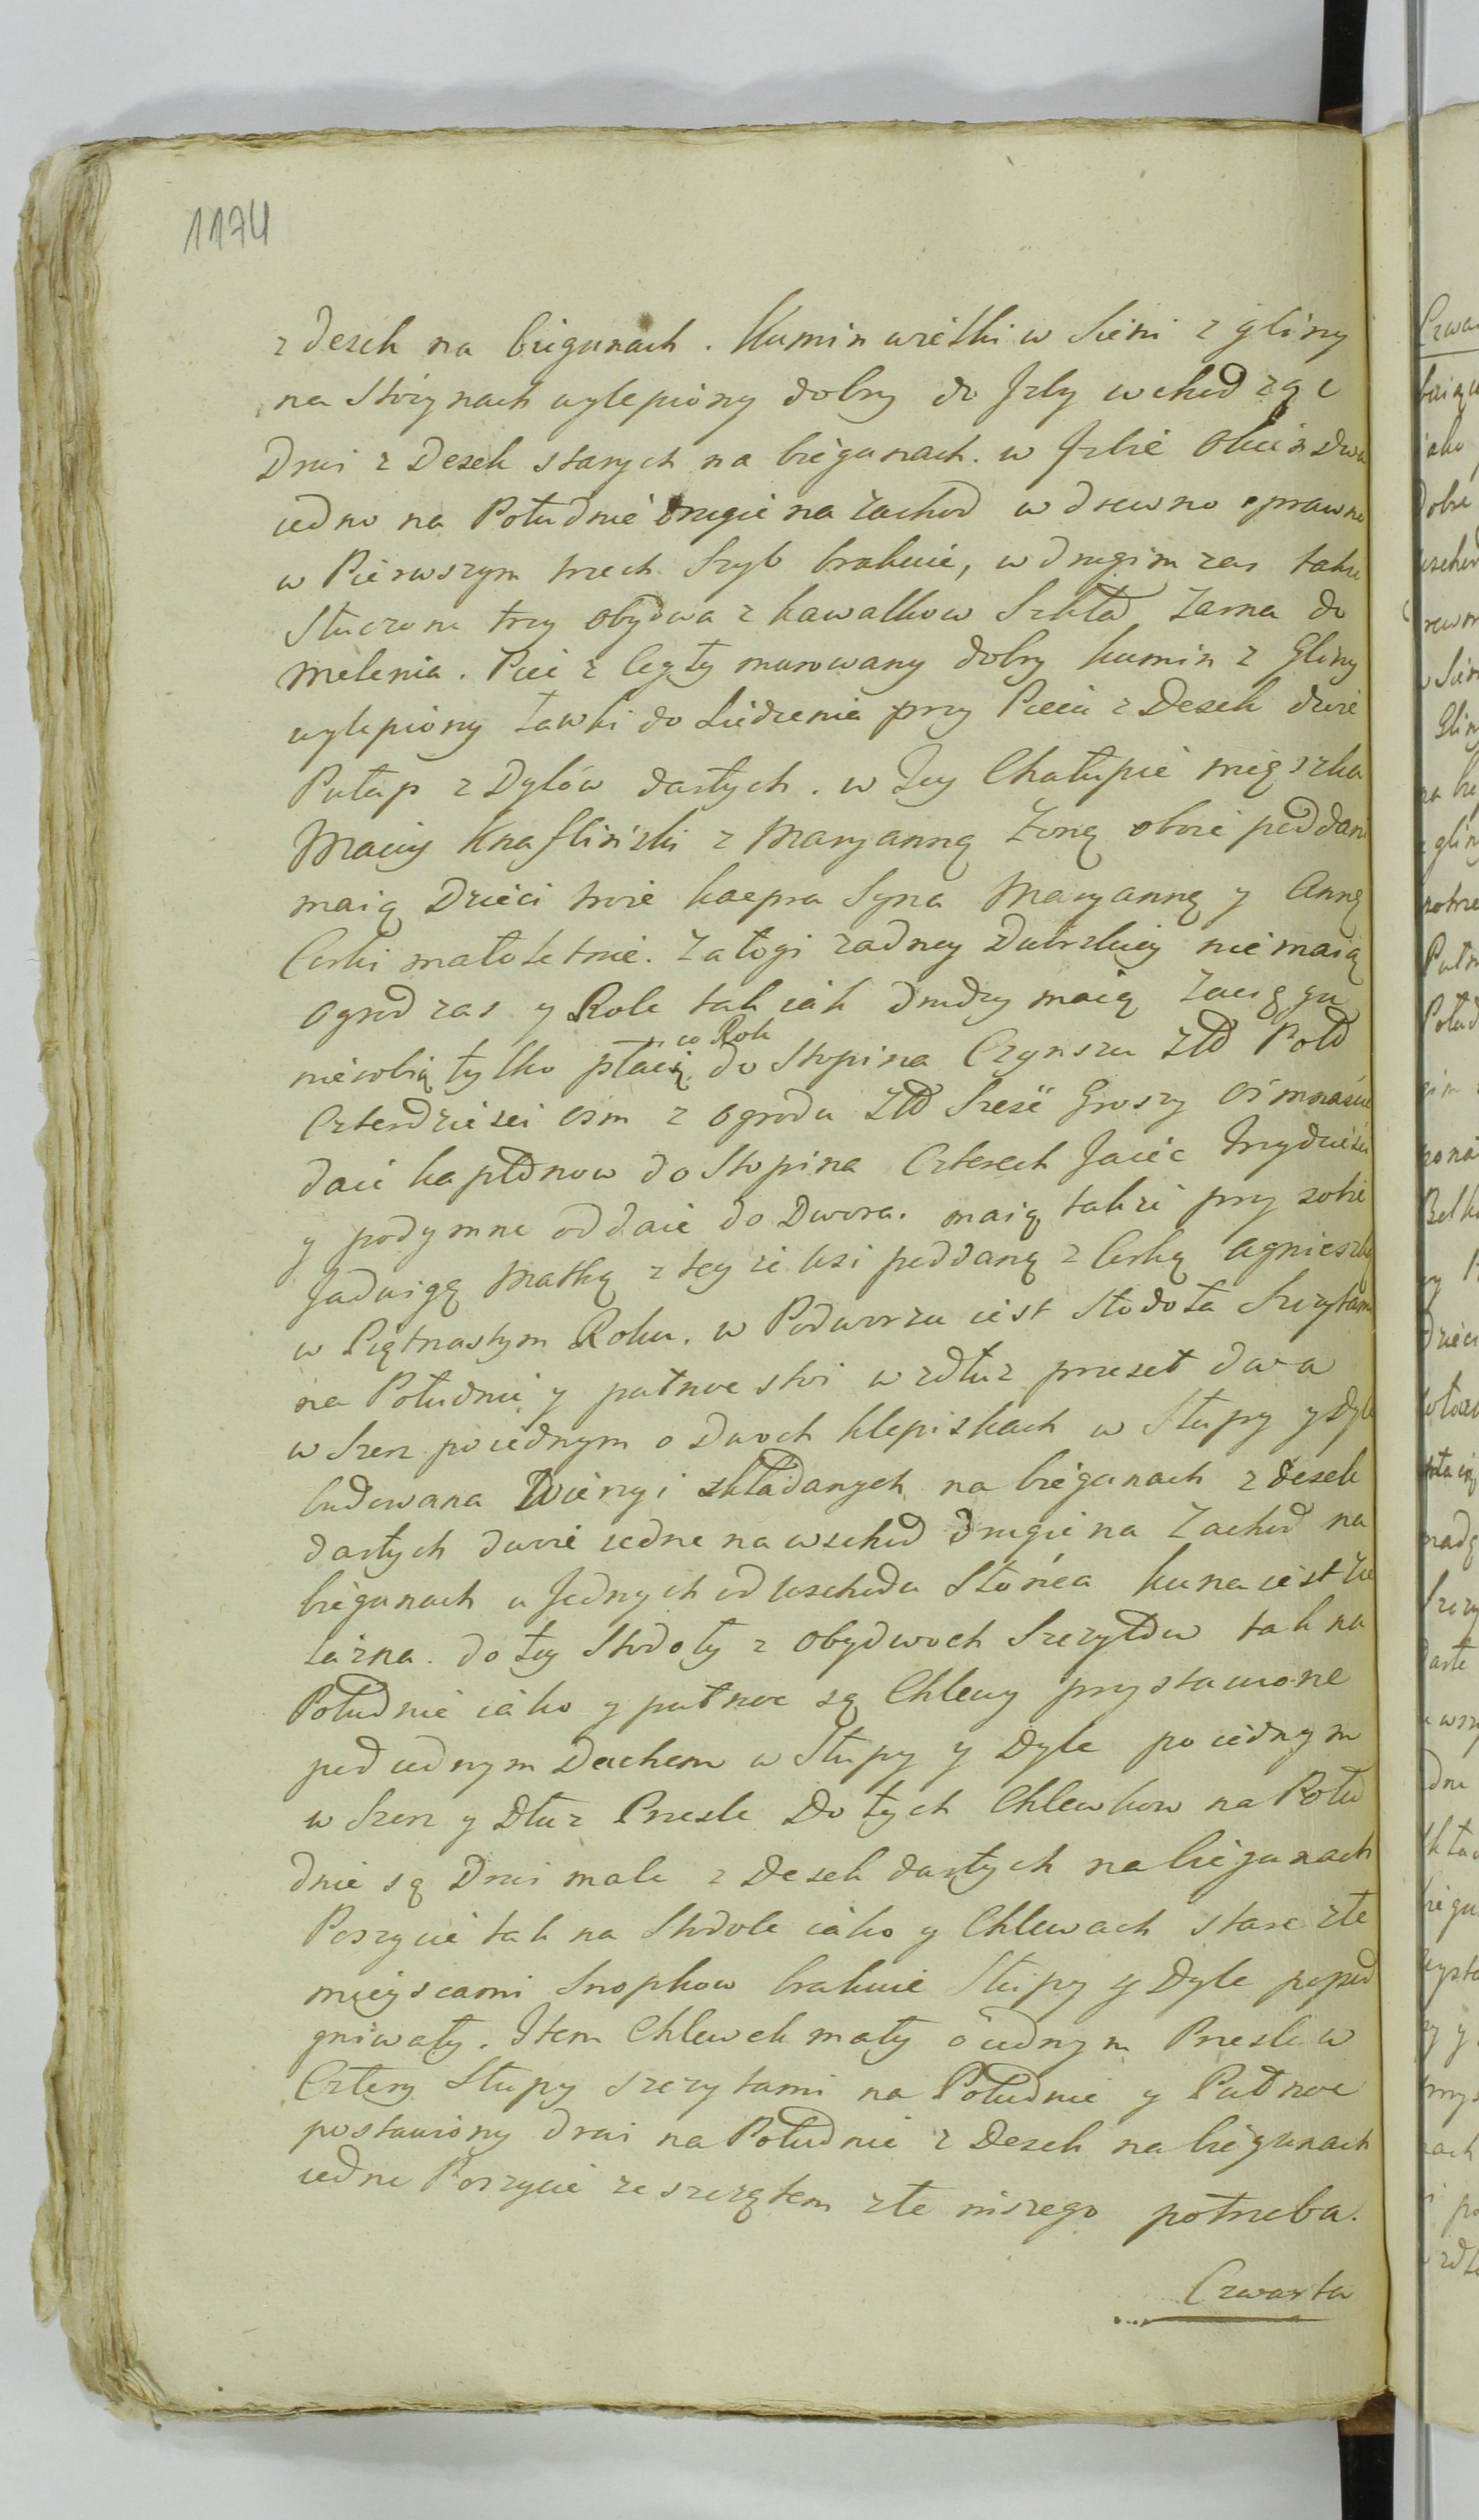 1174
z desek na bieganach. Kumin wielki w Sieni z gliny
na Stoiynach wylepiony dobry do Izby wchodząc
Drwi z Desek starych na bieganach. w Izbie Okien dwa
iedno na Południe drugie na Zachod w drewno oprawne
w Pierwszym trzech Szyb brakuie, w drugim zas także
Stuczone trzy obydwa z kawałkow Szkła Zarna do
Melenia. Piec z Cegły murowany dobry kumin z Gliny
wylepiony Ławki do Siedzenia przy Piecu z Desek dwie
Putap z Dylów dartych. w Tey Chałupie mięszka
Maciey Knasliński z Maryanną Żoną oboie poddani
maią Dzieci troie kaspra Syna Maryannę y Annę
Corki małoletnie. Załogi zadney Dworskiey nie maią
ogrod zas y Role tak iak drudzy maią Zaciągu
nierobią tylko płacą co Rok do Stopina Czynszu Złł Poł
Czterdziesci osm z ogrodu Złł Szesć Groszy osmnascie
daie kapłonow do Stopina Czterech Jaiec Trzydziesci
y podymne oddaie do Dwora. maią także przy sobie
Jadwigę Matkę z teyże wsi poddaną z Corką Agnieszką
w Piętnastym Roku. w Podworzu iest Stodoła Szczytami
na Południe y pułnoc stoi wzdłuz przeseł dwa
w Szerz poiednym o Dwoch klepiskach w Słupy y Dyle
budowana Wierzyi składanych na bieganach z desek
dartych dwoie iedne na wschod drugie na Zachod na
bieganach u Jednych od wschodu Słońca kuna iest że
lazna. do tey Stodoły z obydwoch Szczytów tak na
Południe iako y pułnoc są Chlewy przystawione
pod iednym Dachem w Słupy y Dyle po iednym
w Szerz y Dłuz Przesle Do tych Chlewkow na Połu
dnie są Drwi małe z Desek dartych na bieganach
Poszycie tak na Stodole iako y Chlewach stare złe
mieyscami Snopkow brakuie Słupy y Dyle popod
gniwały. Item Chlewek mały o iednym Przesle w
Cztery Słupy szczytami na Południe y Pułnoc
postawiony drwi na Południe z Desek na bieganach
iedne Poszycie ze szczętem złe niszego potrzeba.
Czwarta